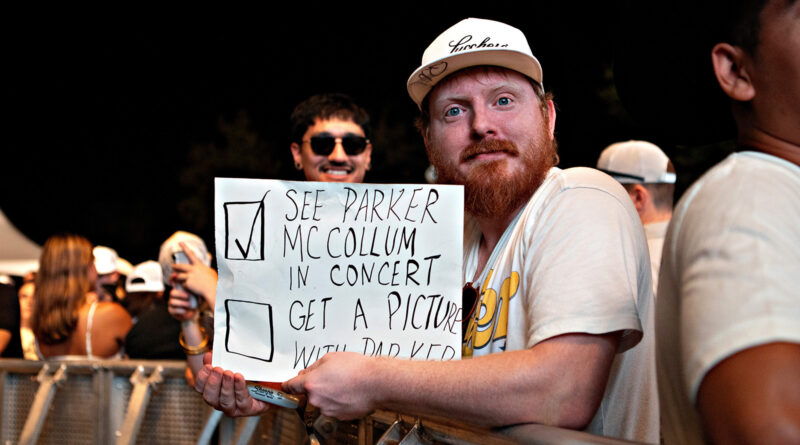 SEE PARKER
MCCOLLUM
IN CONCERT
GET A PICTURE
WITH PARKER